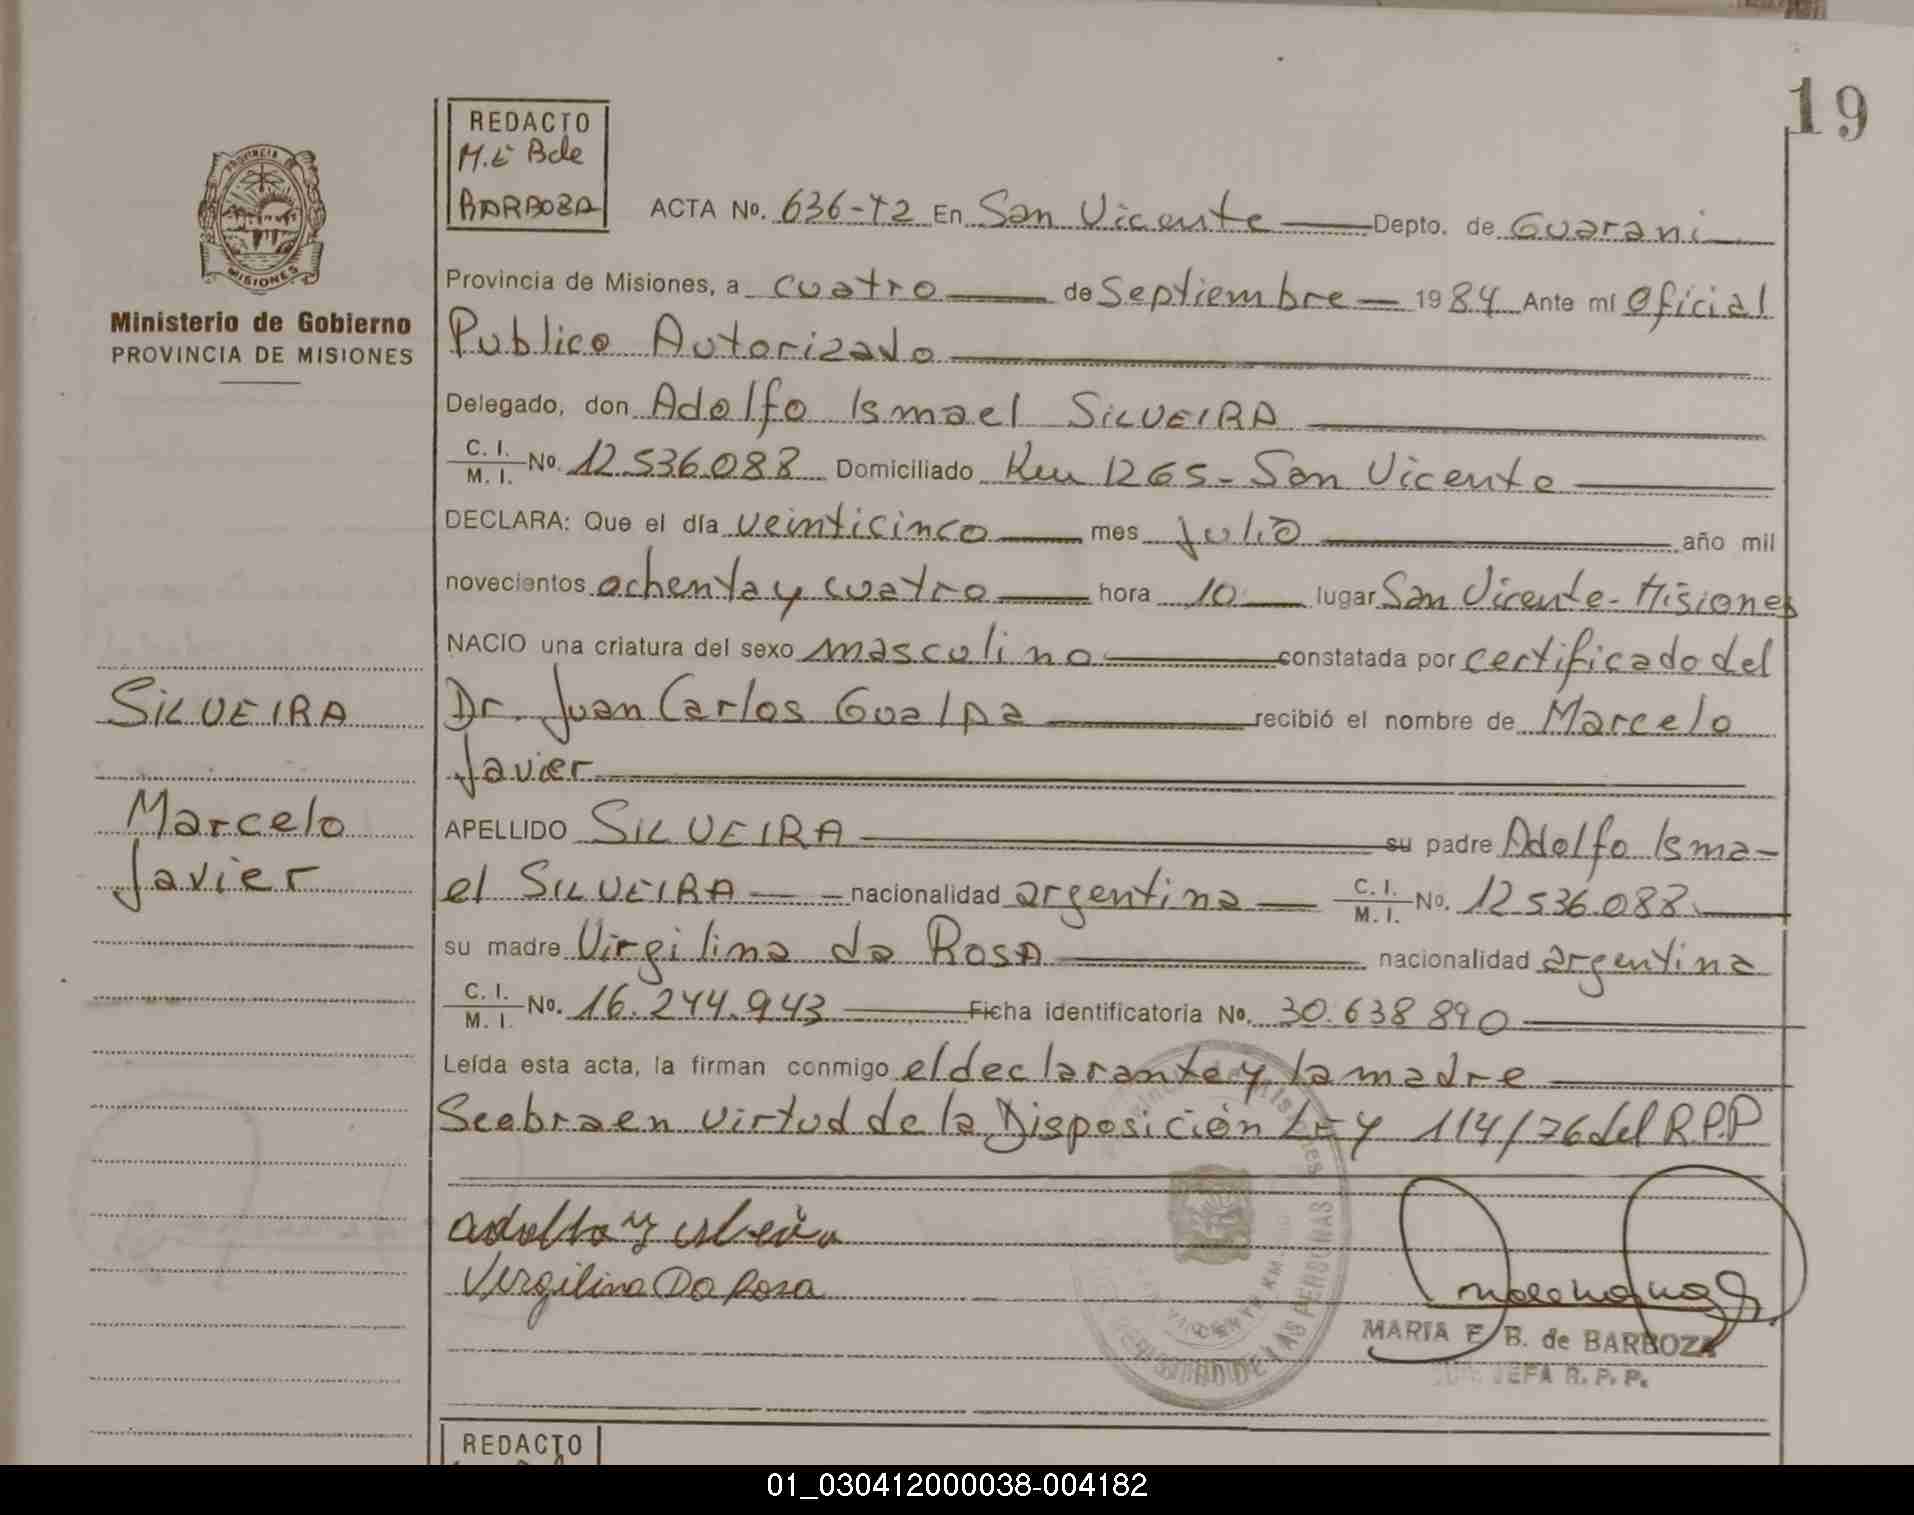 19
REDACTO
M. E B de
BARBOZA
PROVINCIA DE
MISIONES
Ministerio de Gobierno
PROVINCIA DE MISIONES
ACTA No. 636-T2 En San Vicente Depto. de Guarani
Provincia de Misiones, a cuatro de Septiembre 1984 Ante mí Oficial
Publico Autorizado
Delegado, don Adolfo Ismael SILVEIRA
C. I. / M. I. No. 12.536.088 Domiciliado Km 1265 - San Vicente
DECLARA: Que el día veinticinco mes julio año mil
novecientos ochenta y cuatro hora 10 lugar San Vicente - Misiones
NACIO una criatura del sexo masculino constatada por certificado del
Dr. Juan Carlos Gualpa recibió el nombre de Marcelo
Javier
APELLIDO SILVEIRA su padre Adolfo Isma-
el SILVEIRA nacionalidad argentina C. I. / M. I. No. 12.536.088
su madre Virgilina da Rosa nacionalidad argentina
C. I. / M. I. No. 16.244.943 Ficha identificatoria No. 30.638.890
Leída esta acta, la firman conmigo el declarante y la madre
Se labra en virtud de la Disposición LEY 114/76 del R.P.P
SILVEIRA
Marcelo
Javier
Virgilina Da Rosa
MARIA E. B. de BARBOZA
JEFA R. P. P.
REDACTO
01_030412000038-004182